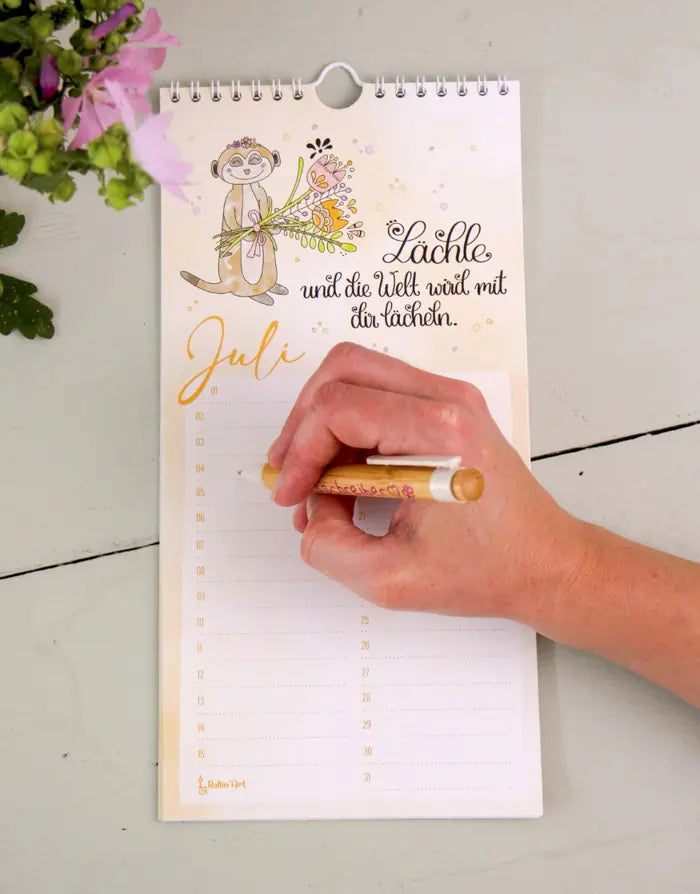 Lächle
und die Welt wird mit
dir lächeln.
Juli
01
02
03
04
05
06
07
08
09
10
11
12
13
14
15
21
25
26
27
28
29
30
31